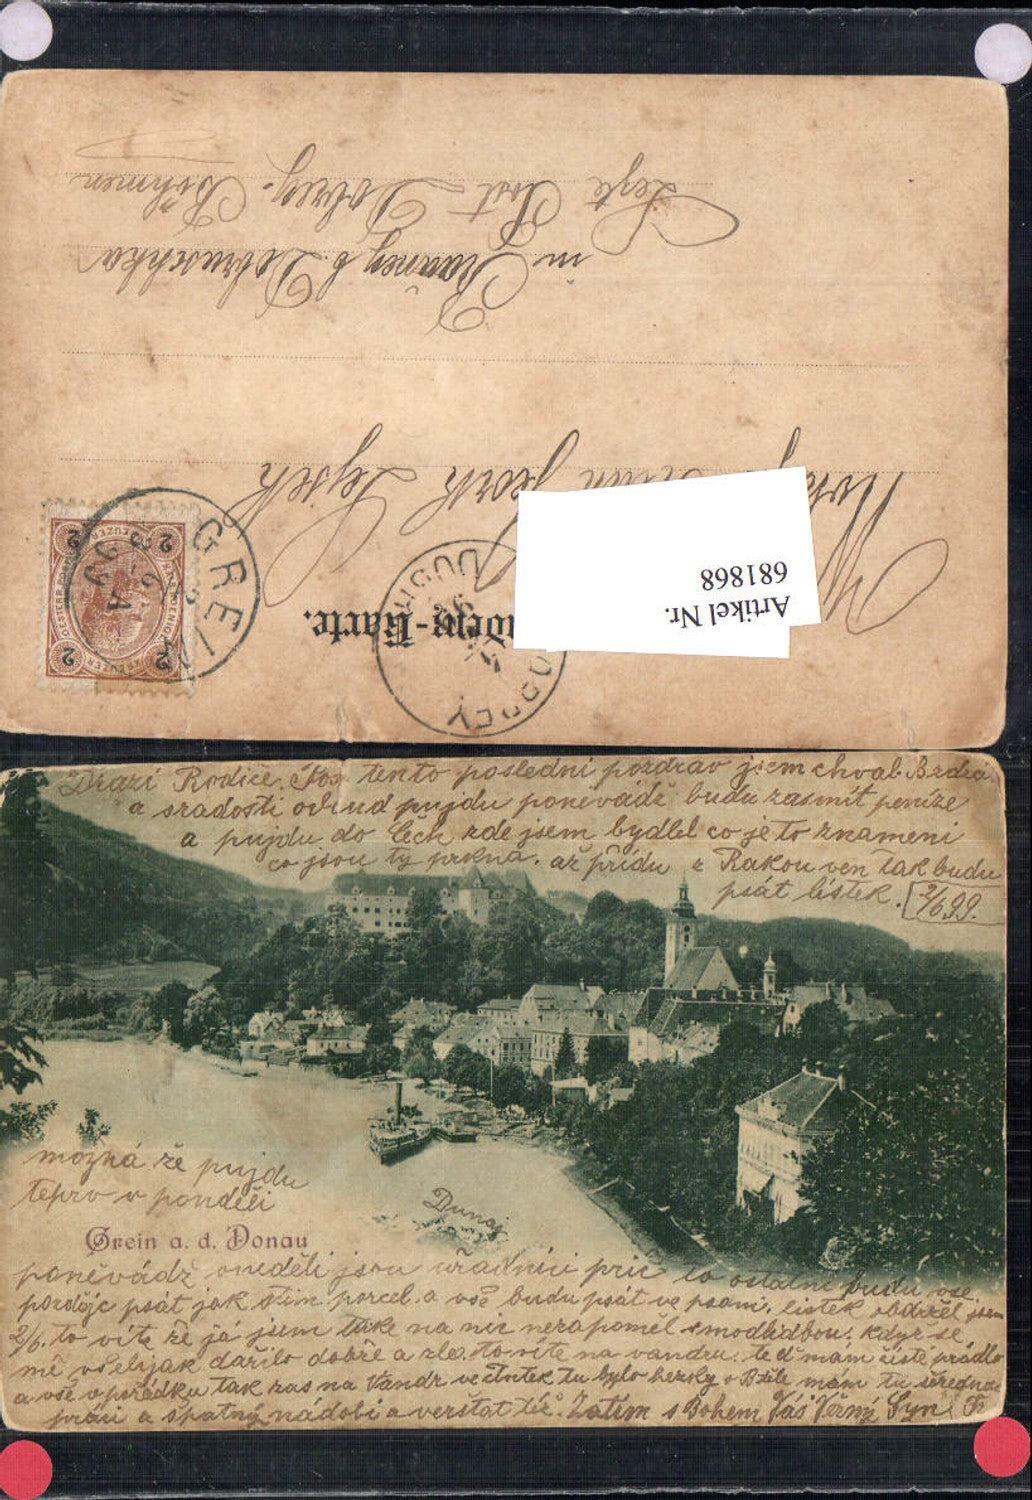 in Rovney b. Dobruschka
Letzte Post Dobrey - Böhmen
Georh Lejsek
Artikel Nr.
681868
Karte.
GREIN
6
99
2 2
2 2
DOBREY
Drazí Rodiče tento poslední pozdrav jsem chval Bzdra
a sradosti odsud pujdu poněvádž budu zasmít peníze
a pujdu do Čech zde jsem bydlel co je to znamení
co jsou ty prkna. až přídu z Rakou ven tak budu
psát lístek. 2/6 99.
možná že pujdu
teprv v pondělí
Dunaj
Grein a. d. Donau
poněvádž oneděli jsou uřadníci prič to ostatní budu vše
pozdějc psát jak stim porcel. a vše budu psát ve psaní. listek obdržel jsem
2/6. to víte že já jsem také na nic nezapoměl smodlidbou. když se
mě všelijak dařilo dobře a zle. to víte na vandru. teď mám čisté prádlo
a vše v pořádku tak zas na Vandr ve čtvrtek tu bylo hezky v Bztě mám tu uřednau
práci a špatný nádobí a verštat též. Zatím s Bohem Váš Věrný Syn Fr